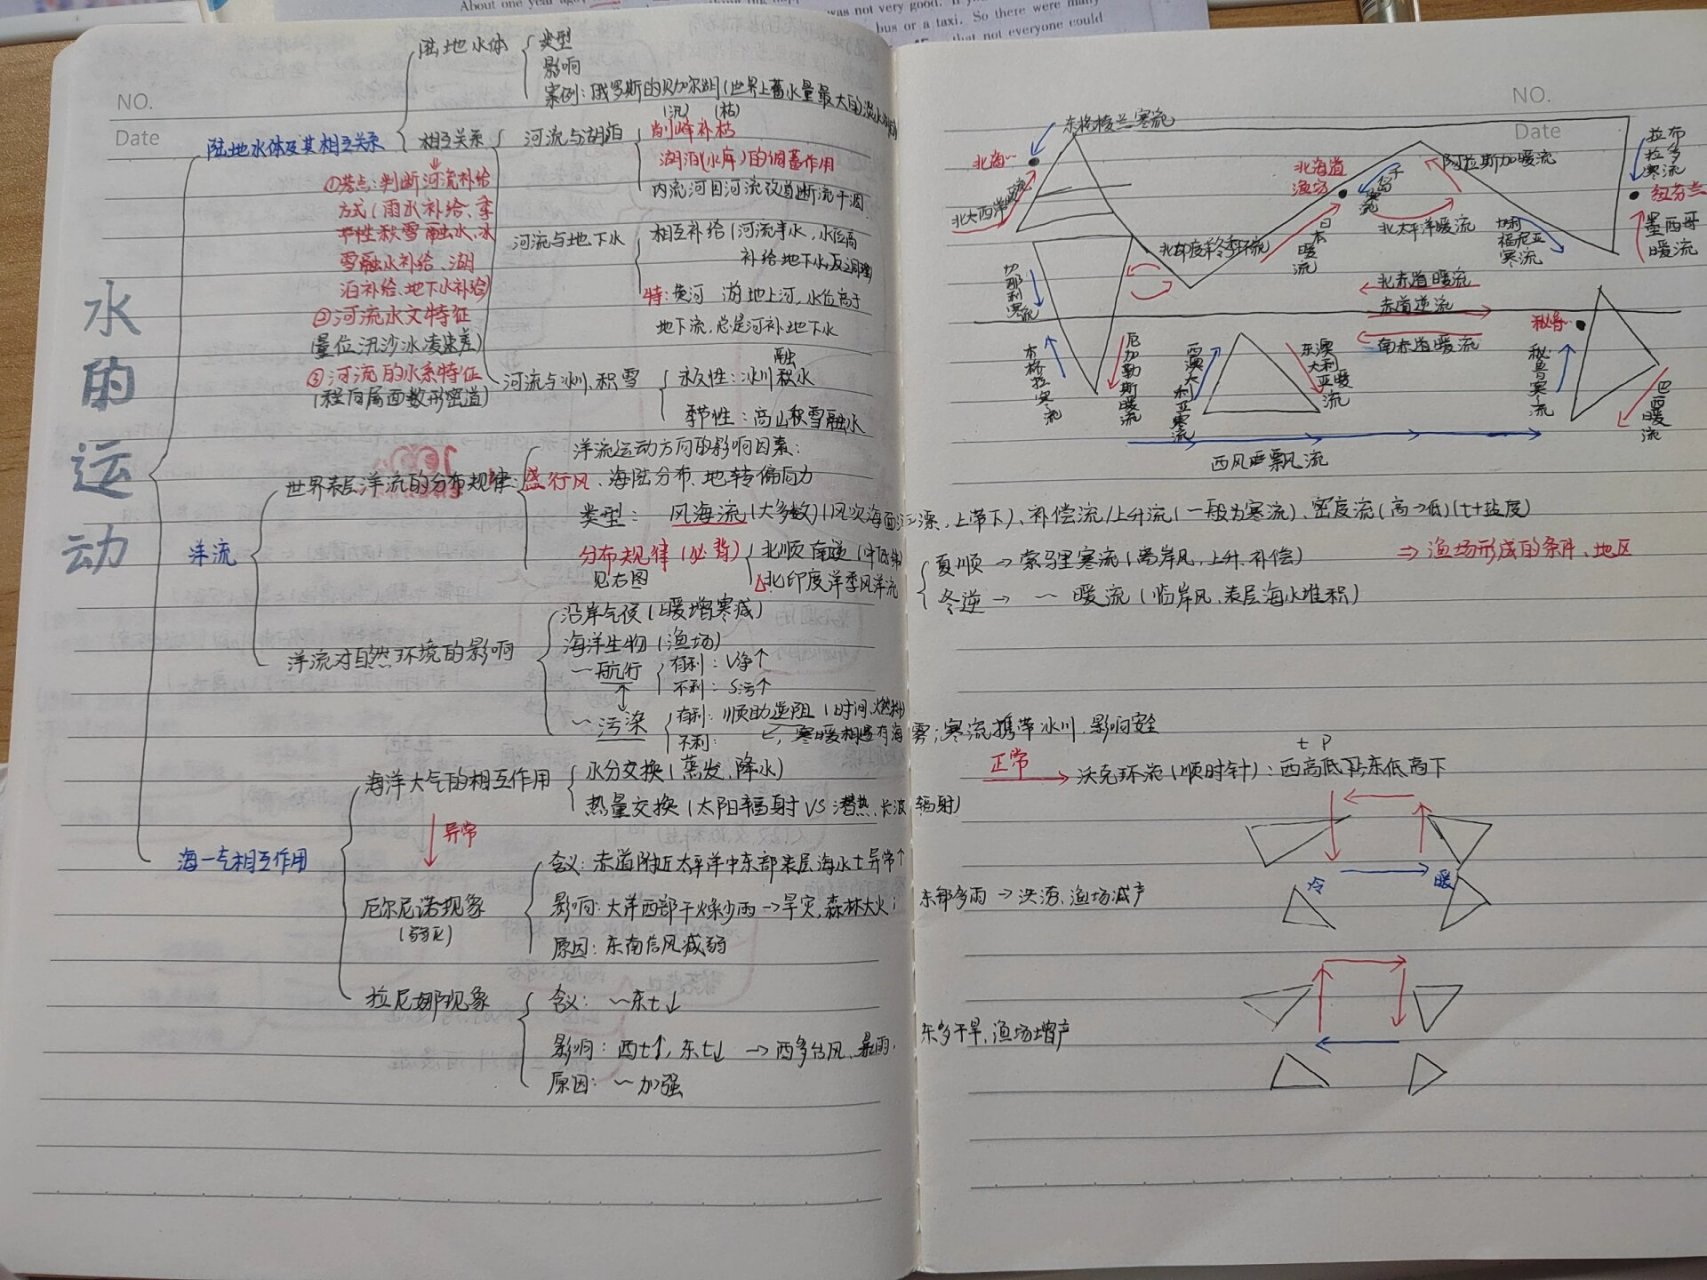 About one year ago
was not very good. If y
bus or a taxi. So there were many
that not everyone could
NO.
Date
水的运动
陆地水体及其相互关系
陆地水体
类型
影响
案例:俄罗斯的贝加尔湖(世界上蓄水量最大的淡水
相互关系
①考点:判断河流补给
方式(雨水补给、季
节性积雪融水、冰
雪融水补给、湖
泊补给、地下水补给)
②河流水文特征
(量位汛沙冰凌速差)
③河流的水系特征
河流与湖泊
(汛) (枯)
削峰补枯
湖泊(水库)的调蓄作用
河流与地下水
相互补给(河流丰水,水位高
补给地下水,反之
特:黄河 游地上河,水位高于
地下流,总是河补地下水
河流与冰川、积雪
融
永久性:冰川积水
季节性:高山积雪融水
洋流
世界表层洋流的分布规律:
洋流运动方向的影响因素:
盛行风、海陆分布、地转偏向力
类型: 风海流(大多数)(风吹海面 漂,上带下)、补偿流/上升流(一般为寒流)、密度流(高→低)(t+盐度)
分布规律(必背)
见右图
北顺南逆(中低纬)
△北印度洋季风洋流
夏顺→索马里寒流(离岸风,上升,补偿)
冬逆→ ~ 暖流(临岸风,表层海水堆积)
⇒渔场形成的条件、地区
洋流对自然环境的影响
沿岸气候(暖增寒减)
海洋生物(渔场)
~航行
有利:V净↑
不利:S污↑
~污染
有利:顺助逆阻(时间、燃料)
不利: ~,寒暖相遇有海雾;寒流携带冰川,影响安全
海一气相互作用
海洋大气的相互作用
水分交换(蒸发、降水)
热量交换(太阳辐射VS潜热、长波辐射)
异常
厄尔尼诺现象
含义:赤道附近太平洋中东部表层海水t异常↑
影响:大洋西部干燥少雨→旱灾,森林大火;
东部多雨→洪涝、渔场减产
原因:东南信风减弱
拉尼娜现象
含义: ~东t↓
影响:西t↑,东t↓ →西多台风、暴雨,
东多干旱,渔场增产
原因:~加强
NO.
Date
东格陵兰寒流
北海…
北大西洋暖
北海道
渔场
千岛寒流
阿拉斯加暖流
拉布拉多寒流
纽芬兰
墨西哥暖流
北印度洋冬季环流
日本暖流
北太平洋暖流
加利福尼亚寒流
加那利寒流
北赤道暖流
赤道逆流
南赤道暖流
秘鲁…
本格拉寒流
厄加勒斯暖流
西澳大利亚寒流
东澳大利亚暖流
秘鲁寒流
巴西暖流
西风飘流
正常
t P
沃克环流(顺时针):西高低 东低高下
冷
暖